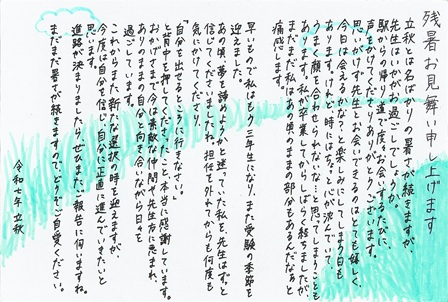 残暑お見舞い申し上げます
立秋とは名ばかりの暑さが続きますが、
先生はいかがお過ごしでしょうか。
駅からの帰り道で度々お会いするたびに、
声をかけてくださりありがとうございます。
思いがけず先生とお会いできるのはとても嬉しく、
今日は会えるかな?と楽しみにしてしまう日も
あります。けれど時にはちょっと沈んでいて
うまく顔を合わせられないな…と思ってしまうことも
あります。私が卒業してからしばらく経ちましたが、
まだまだ私はあの頃のままの部分もあるんだなぁと
痛感します。
早いもので私はもう三年生になり、また受験の季節を
迎えました。
あの頃、夢を諦めようかと迷っていた私を、先生はずっと
信じてくださいましたね。担任を外れてからも何度も
気にかけてくださり、
「自分を出せるところに行きなさい。」
と背中を押してくださったこと、本当に感謝しています。
おかげさまで今は素敵な仲間や先生方に恵まれ、
ありのままの自分と向き合いながら日々を
過ごしています。
これからまた新たな選択の時を迎えますが、
今度は自分を信じ、自分に正直に進んでいきたいと
思います。
進路が決まりましたら、ぜひまたご報告に伺いますね。
まだまだ暑さが続きますので、どうぞご自愛ください。
令和七年 立秋